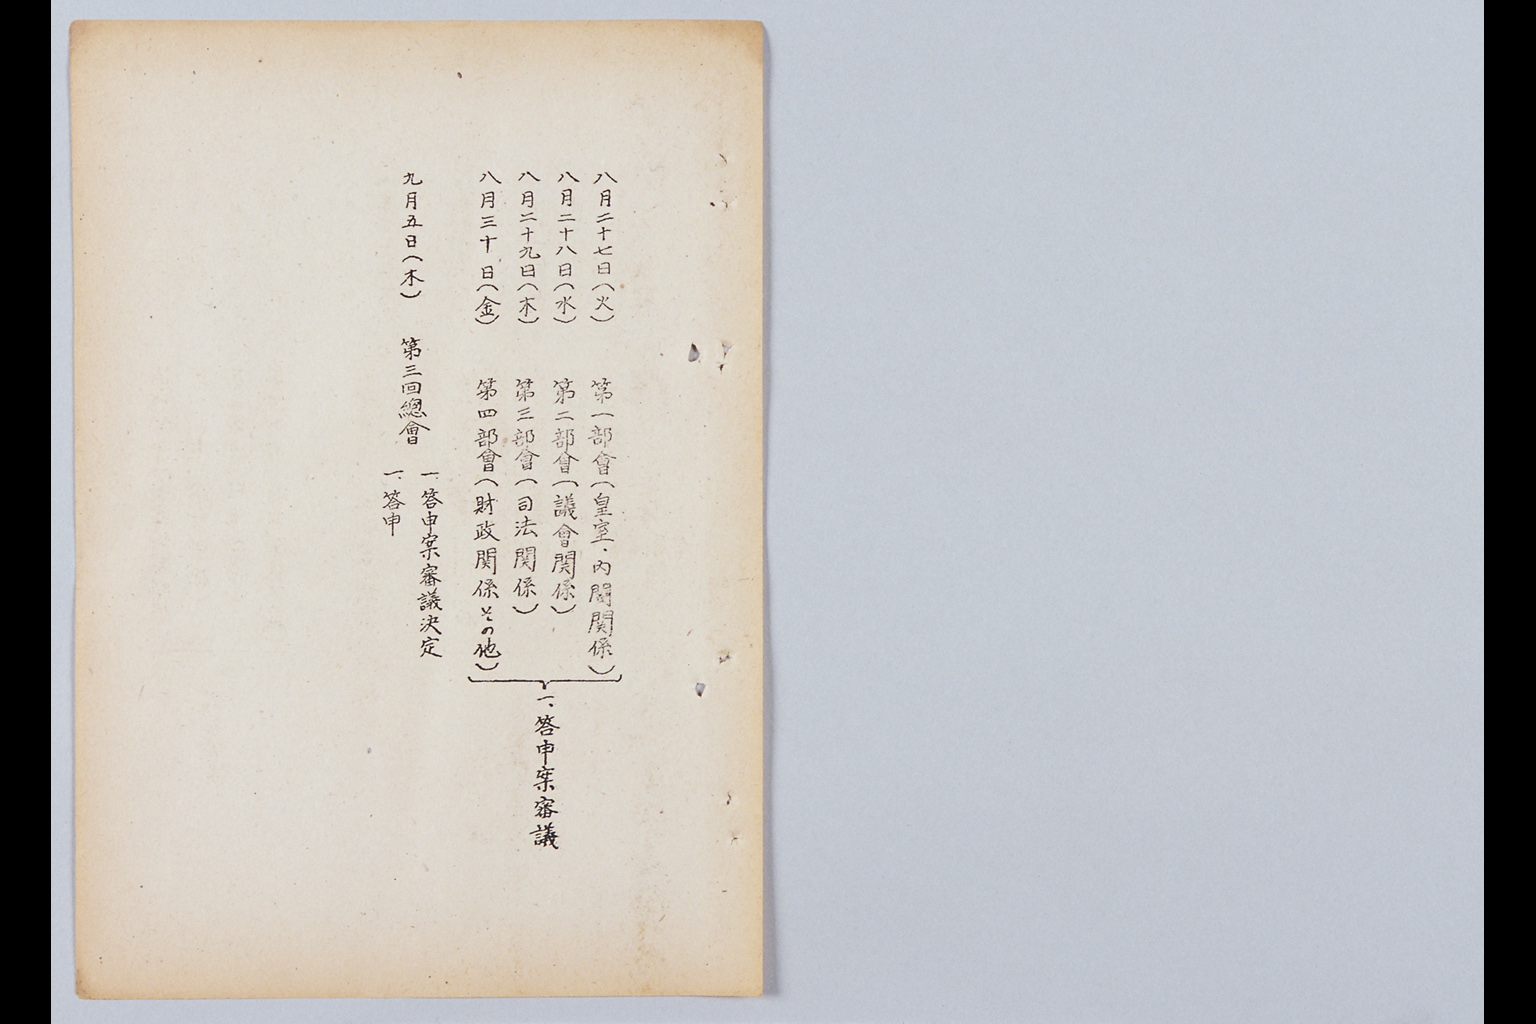 八月二十七日(火) 第一部會(皇室、內閣関係)
八月二十八日(水) 第二部會(議會関係)
八月二十九日(木) 第三部會(司法関係)
八月三十日(金) 第四部會(財政関係その他)
一、答申案審議
九月五日(木) 第三回總會
一、答申案審議決定
一、答申